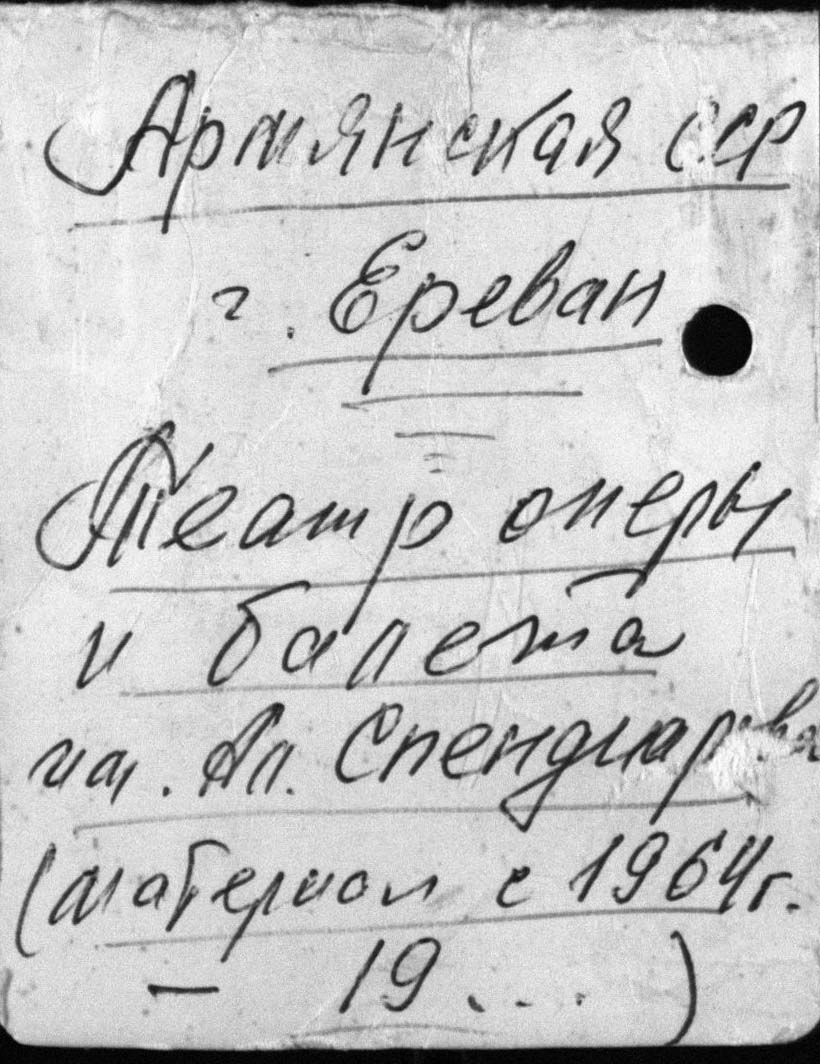 Армянская ССР
г. Ереван
Театр оперы
и балета
им. Ал. Спендиарова
(материал с 1964г.
— 19... )